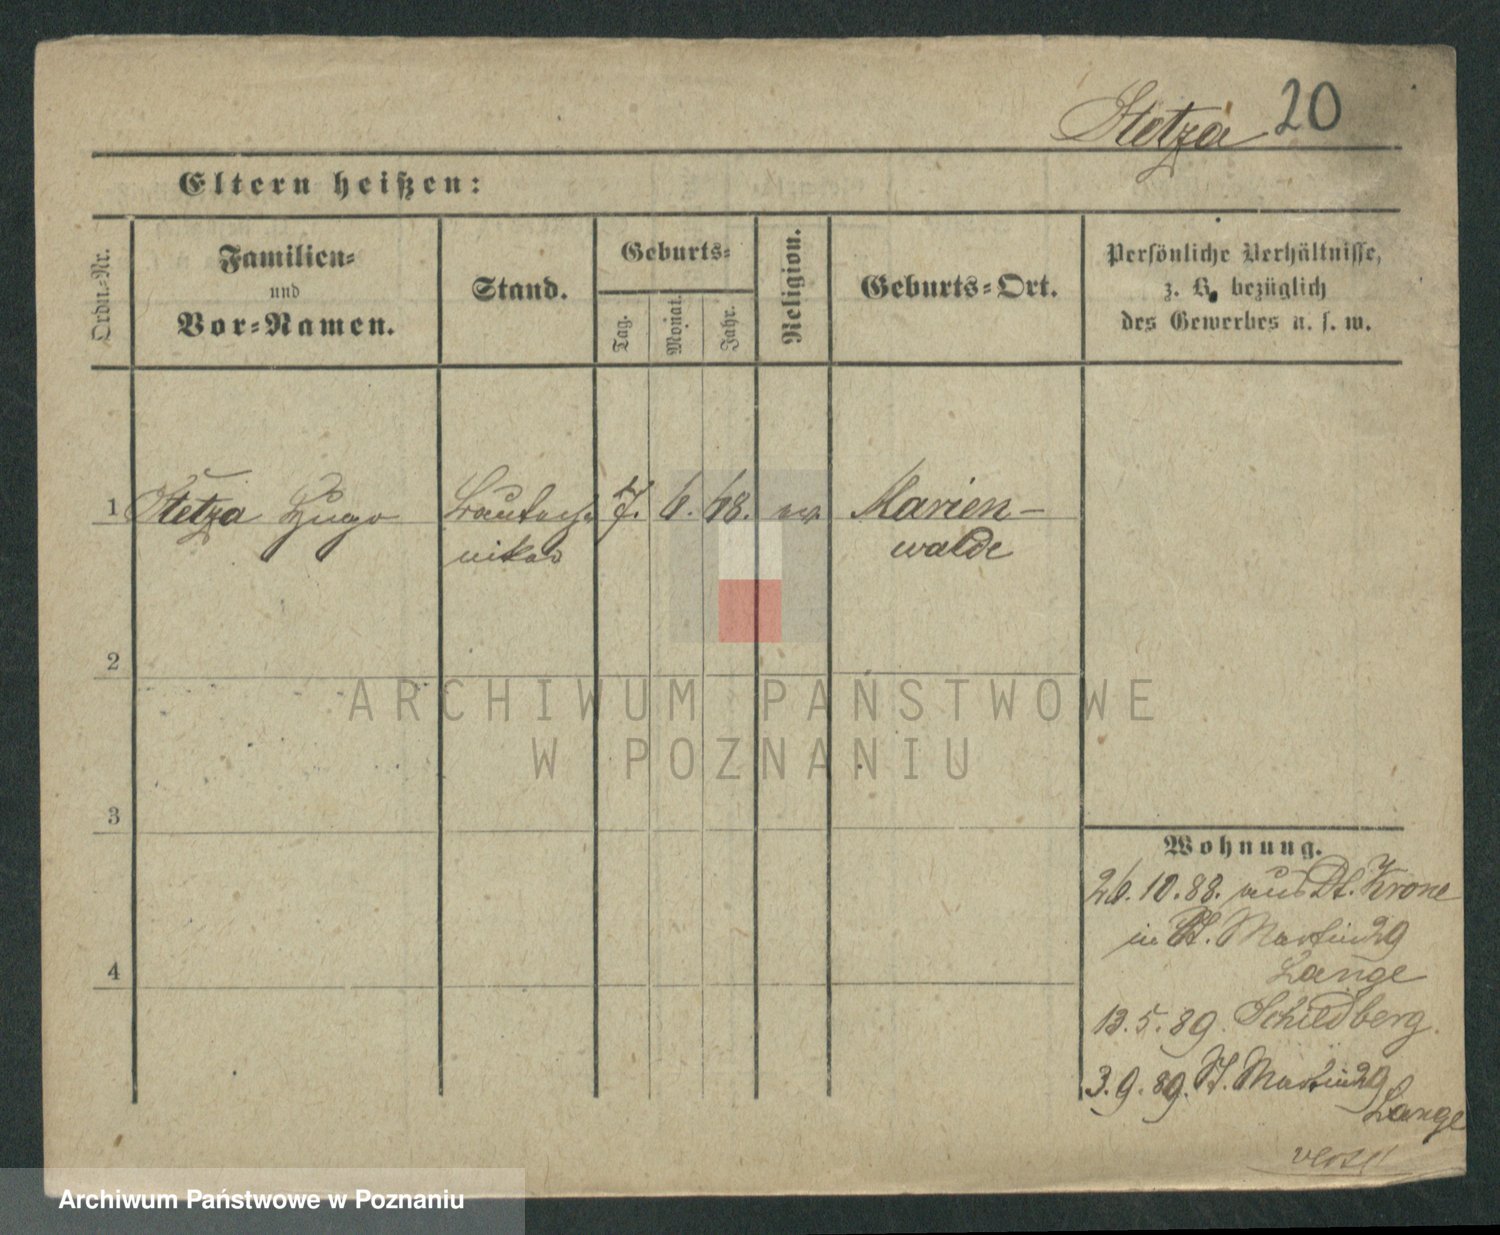 Stetza 20
Eltern heißen:
Ordn.-Nr.
Familien-
und
Vor-Namen.
Stand.
Geburts-
Tag.
Monat.
Jahr.
Religion.
Geburts-Ort.
Persönliche Verhältnisse,
z. B. bezüglich
des Gewerbes u. s. w.
1 Stetza Hugo Bautech- 7. 6. 68. ev. Marien-
niker walde
2
3
4
Wohnung.
26.10.88. aus Dt. Krone
in St. Martin 29
Lange
13.5.89. Schildberg.
3.9.89. St. Martin 29
Lange
verte!
ARCHIWUM PAŃSTWOWE
W POZNANIU
Archiwum Państwowe w Poznaniu